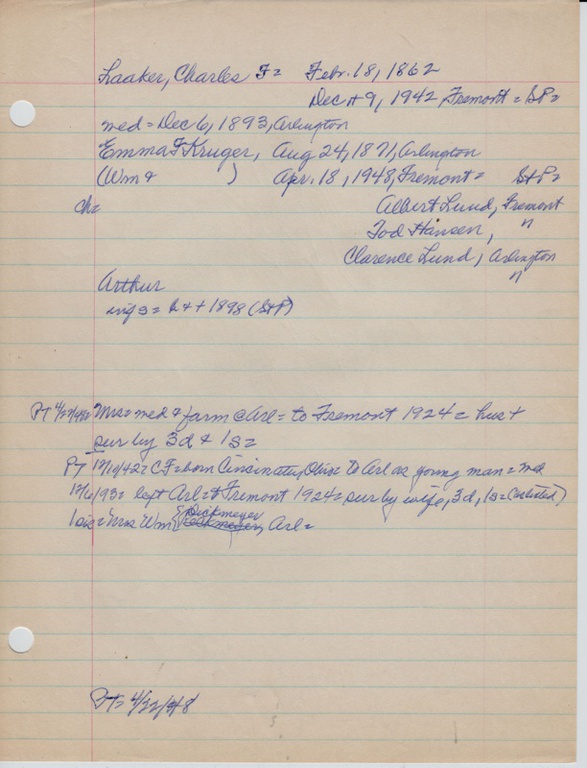 Laaker, Charles F = Febr. 18, 1862
Dec 9, 1942, Fremont = StP =
med = Dec 6, 1893, Arlington
Emma F Kruger, Aug 24, 1871, Arlington
(Wm & ) Apr. 18, 1948, Fremont = StP =
ch = Albert Lund, Fremont
Tod Hansen, "
Clarence Lund, Arlington
"
Arthur
inf s = b + 1898 (StP)
PT 4/22/48 = Mrs = med & farm @ Arl = to Fremont 1924 = hus +
sur by 3d & 1s =
PT 12/10/42 = CF = born Cincinatti, Ohio = to Arl as young man = med
12/6/93 = left Arl = to Fremont 1924 = sur by wife, 3d, 1s =
1 sis = Mrs Wm Dickmeyer, Arl =
PT = 4/22/48